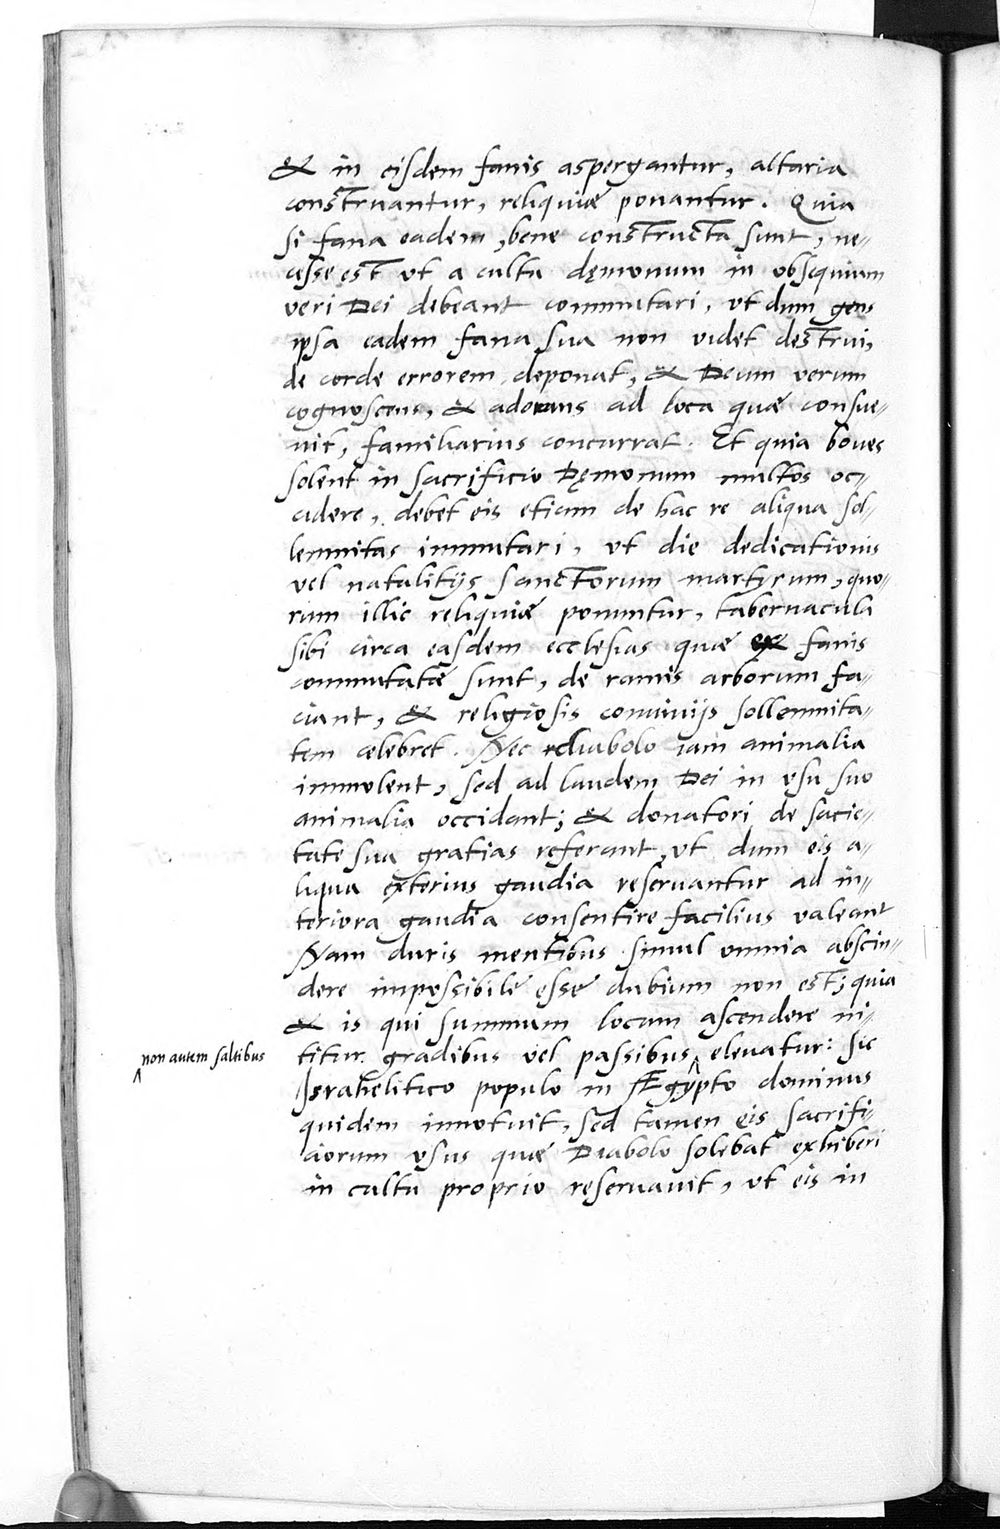 & in eisdem fanis aspergantur, altaria
construantur, reliquiæ ponantur. Quia
si fana eadem, bene constructa sunt, ne=
cesse est vt a cultu dęmonum in obsequium
veri Dei debeant commutari, vt dum gens
ipsa eadem fana sua non videt destrui,
de corde errorem deponat, & Deum verum
cognoscens, & adorans ad loca quæ consue=
uit, familiarius concurrat. Et quia boues
solent in sacrificio Dęmonum multos oc=
cidere, debet eis etiam de hac re aliqua sol=
lemnitas immutari, vt die dedicationis
vel natalitijs sanctorum martyrum, quo=
rum illic reliquiæ ponuntur, tabernacula
sibi circa easdem ecclesias quæ ex fanis
commutatæ sunt, de ramis arborum fa=
ciant, & religiosis conuiuijs sollemnita=
tem celebret. Nec diabolo iam animalia
immolent, sed ad laudem Dei in vsu suo
animalia occidant; & donatori de sacie=
tate sua gratias referant, vt dum eis a=
liqua exterius gaudia reseruantur ad in=
teriora gaudia consentire facilius valeant
Nam duris mentibus simul omnia abscin=
dere impossibile esse dubium non est; quia
& is qui summum locum ascendere ni=
non autem saltibus
titur gradibus vel passibus, eleuatur: sic
Israhelitico populo in Ægypto dominus
quidem innotuit, sed tamen eis sacrifi=
ciorum vsus quæ Diabolo solebat exhiberi
in cultu proprio reseruauit, vt eis in